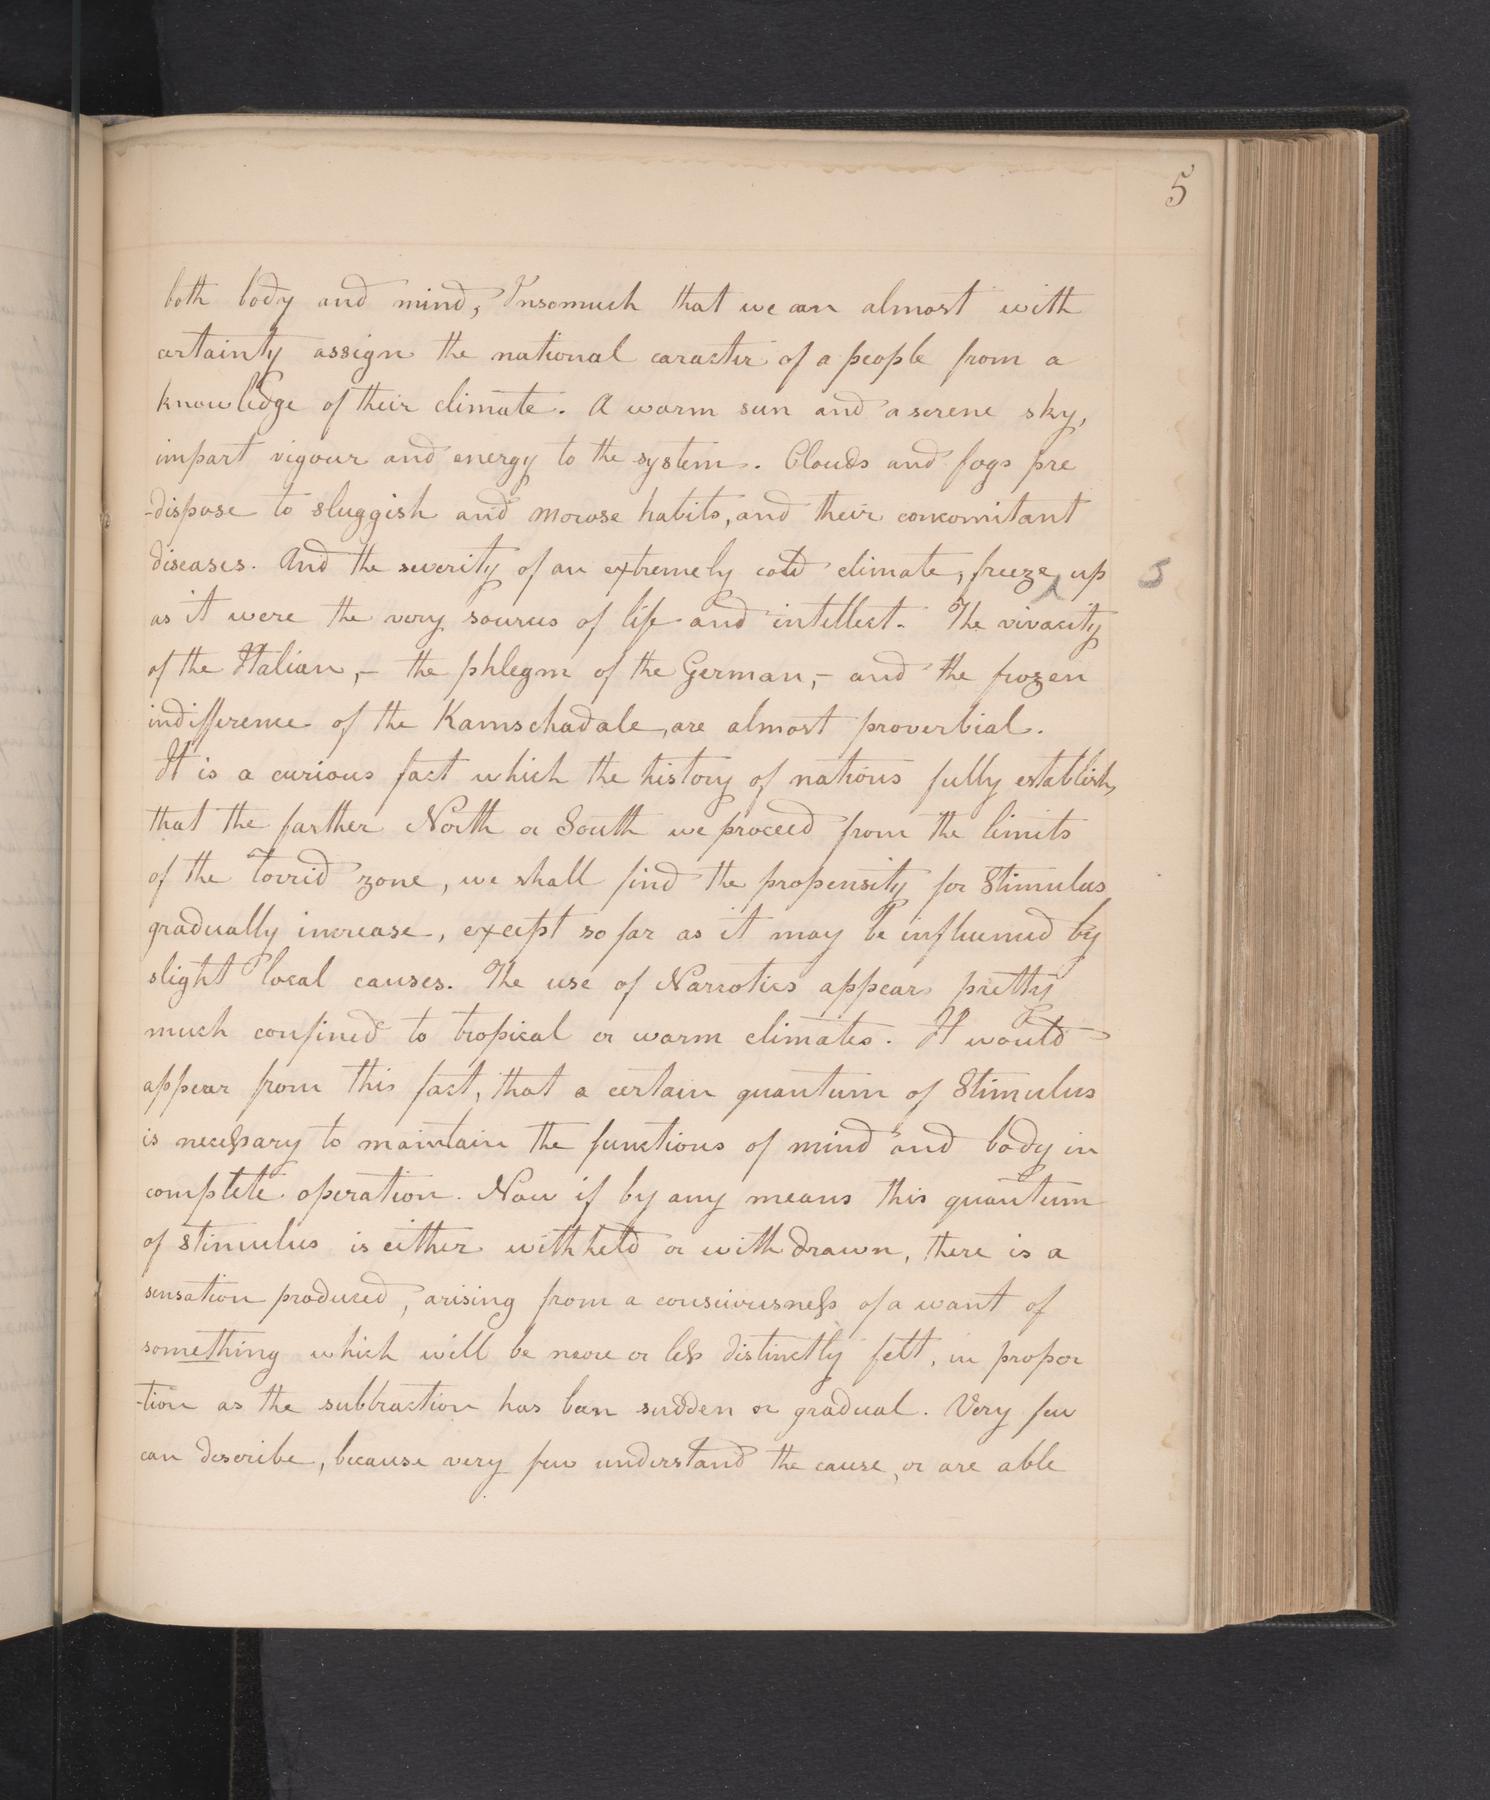 5
both body and mind, Insomuch that we can almost with
certainty assign the national caracter of a people from a
knowledge of their climate. A warm sun and a serene sky,
impart vigour and energy to the system. Clouds and fogs pre
-dispose to sluggish and morose habits, and their concomitant
diseases. And the severity of an extremely cold climate, freeze ‸ up s
as it were the very sources of life and intellect. The vivacity
of the Italian,- the phlegm of the German,- and the frozen
indifference of the Kamschadale, are almost proverbial.
It is a curious fact which the history of nations fully establish,
that the farther North or South we proceed from the limits
of the Torrid zone, we shall find the propensity for Stimulus
gradually increase, except so far as it may be influenced by
slight local causes. The use of Narcotics appears pretty
much confined to tropical or warm climates. It would
appear from this fact, that a certain quantum of Stimulus
is necessary to maintain the functions of mind and body in
complete operation. Now if by any means this quantum
of stimulus is either withheld or with drawn, there is a
sensation produced, arising from a consciousness of a want of
something which will be more or less distinctly felt, in propor
-tion as the subtraction has been sudden or gradual. Very few
can describe, because very few understand the cause, or are able